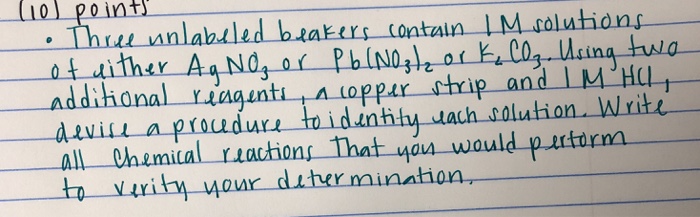 (10) points
• Three unlabeled beakers contain 1M solutions
of either AgNO₃ or Pb(NO₃)₂ or K₂CO₃. Using two
additional reagents, a copper strip and 1M HCl,
devise a procedure to identify each solution. Write
all Chemical reactions that you would perform
to verify your determination.